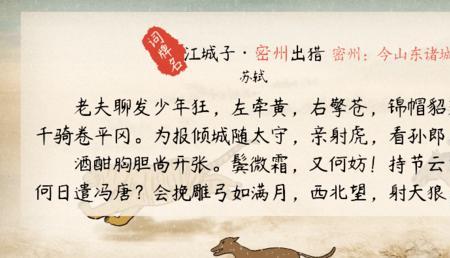 词牌名
江城子·密州出猎 密州：今山东诸城
苏轼
老夫聊发少年狂，左牵黄，右擎苍，锦帽貂
千骑卷平冈。为报倾城随太守，亲射虎，看孙郎
酒酣胸胆尚开张。鬓微霜，又何妨！持节云
何日遣冯唐？会挽雕弓如满月，西北望，射天狼